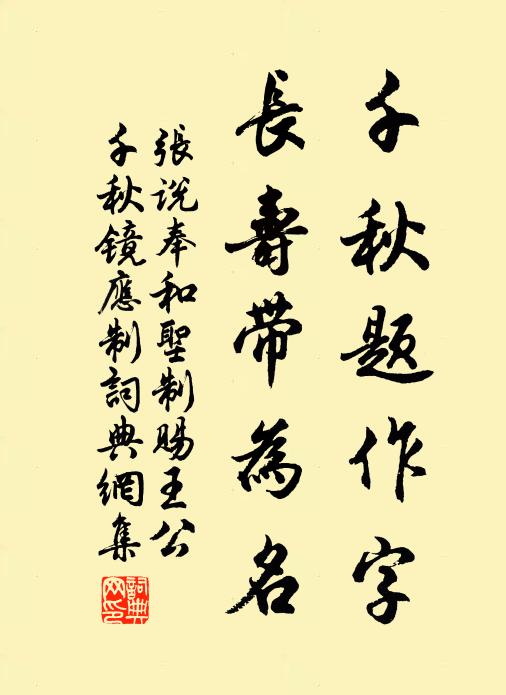 千秋题作字
長壽帶為名
張说奉和聖制賜王公
千秋镜應制詞典網集
詞典网印